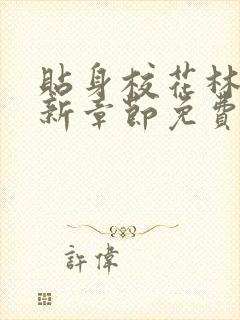 貼身校花林
新章節免費
許偉